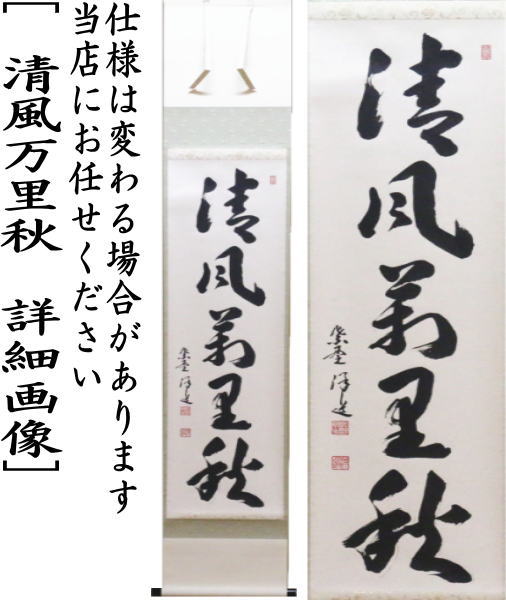 仕様は変わる場合があります
当店にお任せください
[ 清風万里秋 詳細画像]
清風萬里秋
清風萬里秋